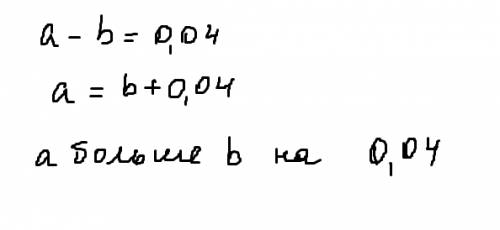 a - b = 0,04
a = b + 0,04
a больше b на 0,04